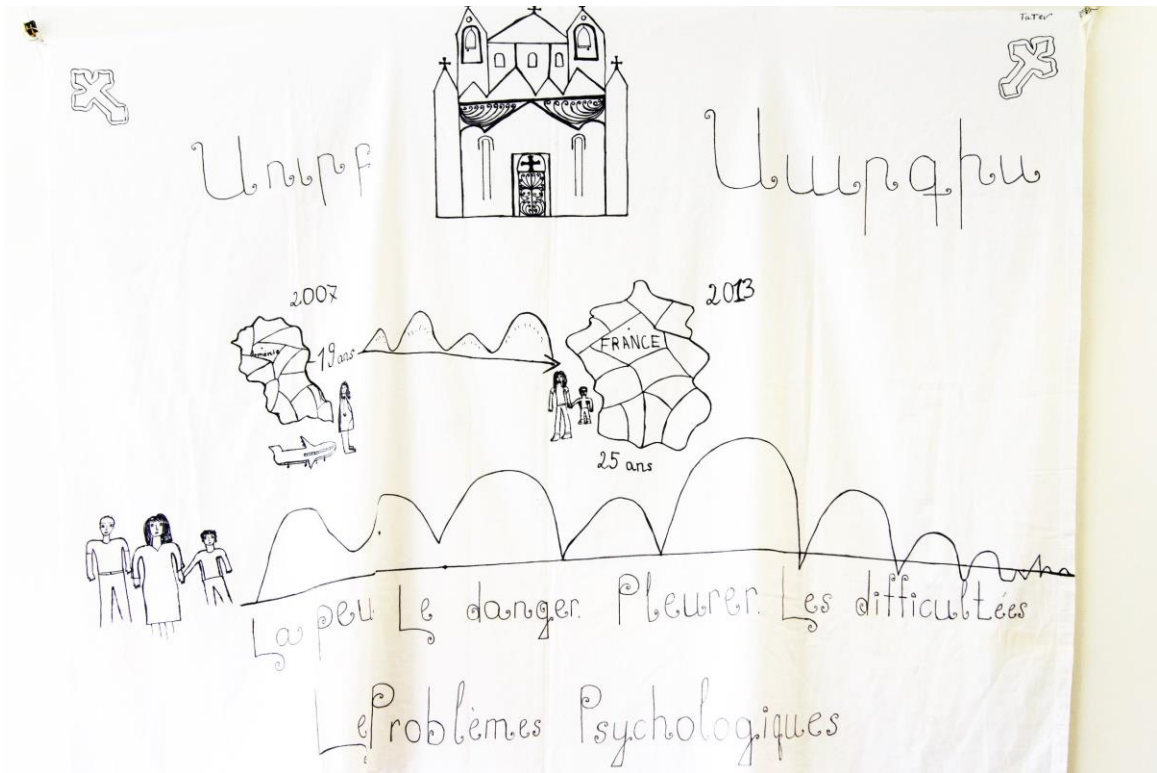 Tatev
Սուրբ Սարգիս
2007
2013
Arménie
19 ans
FRANCE
25 ans
La peu Le danger. Pleurer. Les difficultées
Le Problèmes Psychologiques